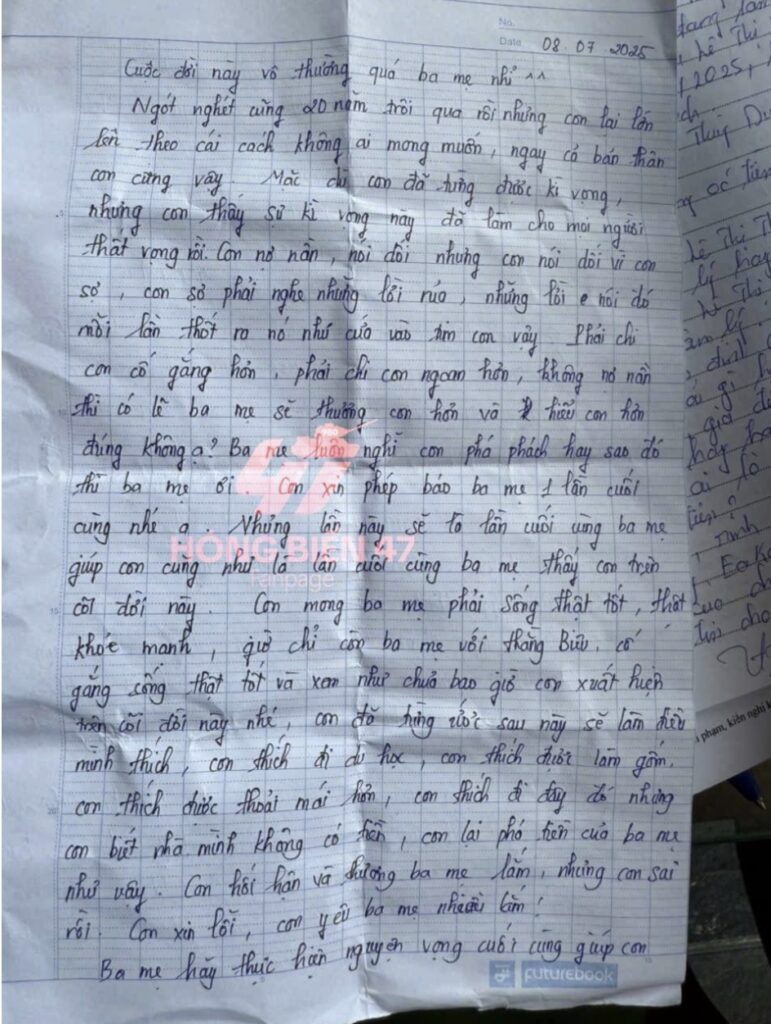 No.
Date 08.07.2025
Cuộc đời này vô thường quá ba mẹ nhỉ ^^
Ngót nghét cũng 20 năm trôi qua rồi nhưng con lại lớn
lên theo cái cách không ai mong muốn, ngay cả bản thân
con cũng vậy. Mặc dù con đã từng được kì vọng,
nhưng con thấy sự kì vọng này đã làm cho mọi người
thất vọng rồi. Con nợ nần, nói dối nhưng con nói dối vì con
sợ, con sợ phải nghe những lời rủa, những lời nói đó
mỗi lần thốt ra nó như cứa vào tim con vậy. Phải chi
con cố gắng hơn, phải chi con ngoan hơn, không nợ nần
thì có lẽ ba mẹ sẽ thương con hơn và hiểu con hơn
đúng không ạ? Ba mẹ luôn nghĩ con phá phách hay sao đó
thì ba mẹ ơi. Con xin phép báo ba mẹ 1 lần cuối
cùng nhé ạ. Nhưng lần này sẽ là lần cuối cùng ba mẹ
giúp con cũng như là lần cuối cùng ba mẹ thấy con trên
cõi đời này. Con mong ba mẹ phải sống thật tốt, thật
khỏe mạnh, giờ chỉ còn ba mẹ với thằng Bửu. cố
gắng sống thật tốt và xem như chưa bao giờ con xuất hiện
trên cõi đời này nhé, con đã từng ước sau này sẽ làm điều
mình thích, con thích đi du học, con thích được làm gốm.
con thích được thoải mái hơn, con thích đi đây đó nhưng
con biết nhà mình không có tiền, con lại phá tiền của ba mẹ
như vậy. Con hối hận và thương ba mẹ lắm, nhưng con sai
rồi. Con xin lỗi, con yêu ba mẹ nhiều lắm!
Ba mẹ hãy thực hiện nguyện vọng cuối cùng giúp con
futurebook
HÓNG BIẾN 47
Fanpage
Lê Thị
2025,
Thùy
Lê Thị
lý hay
phạm, kiến nghị